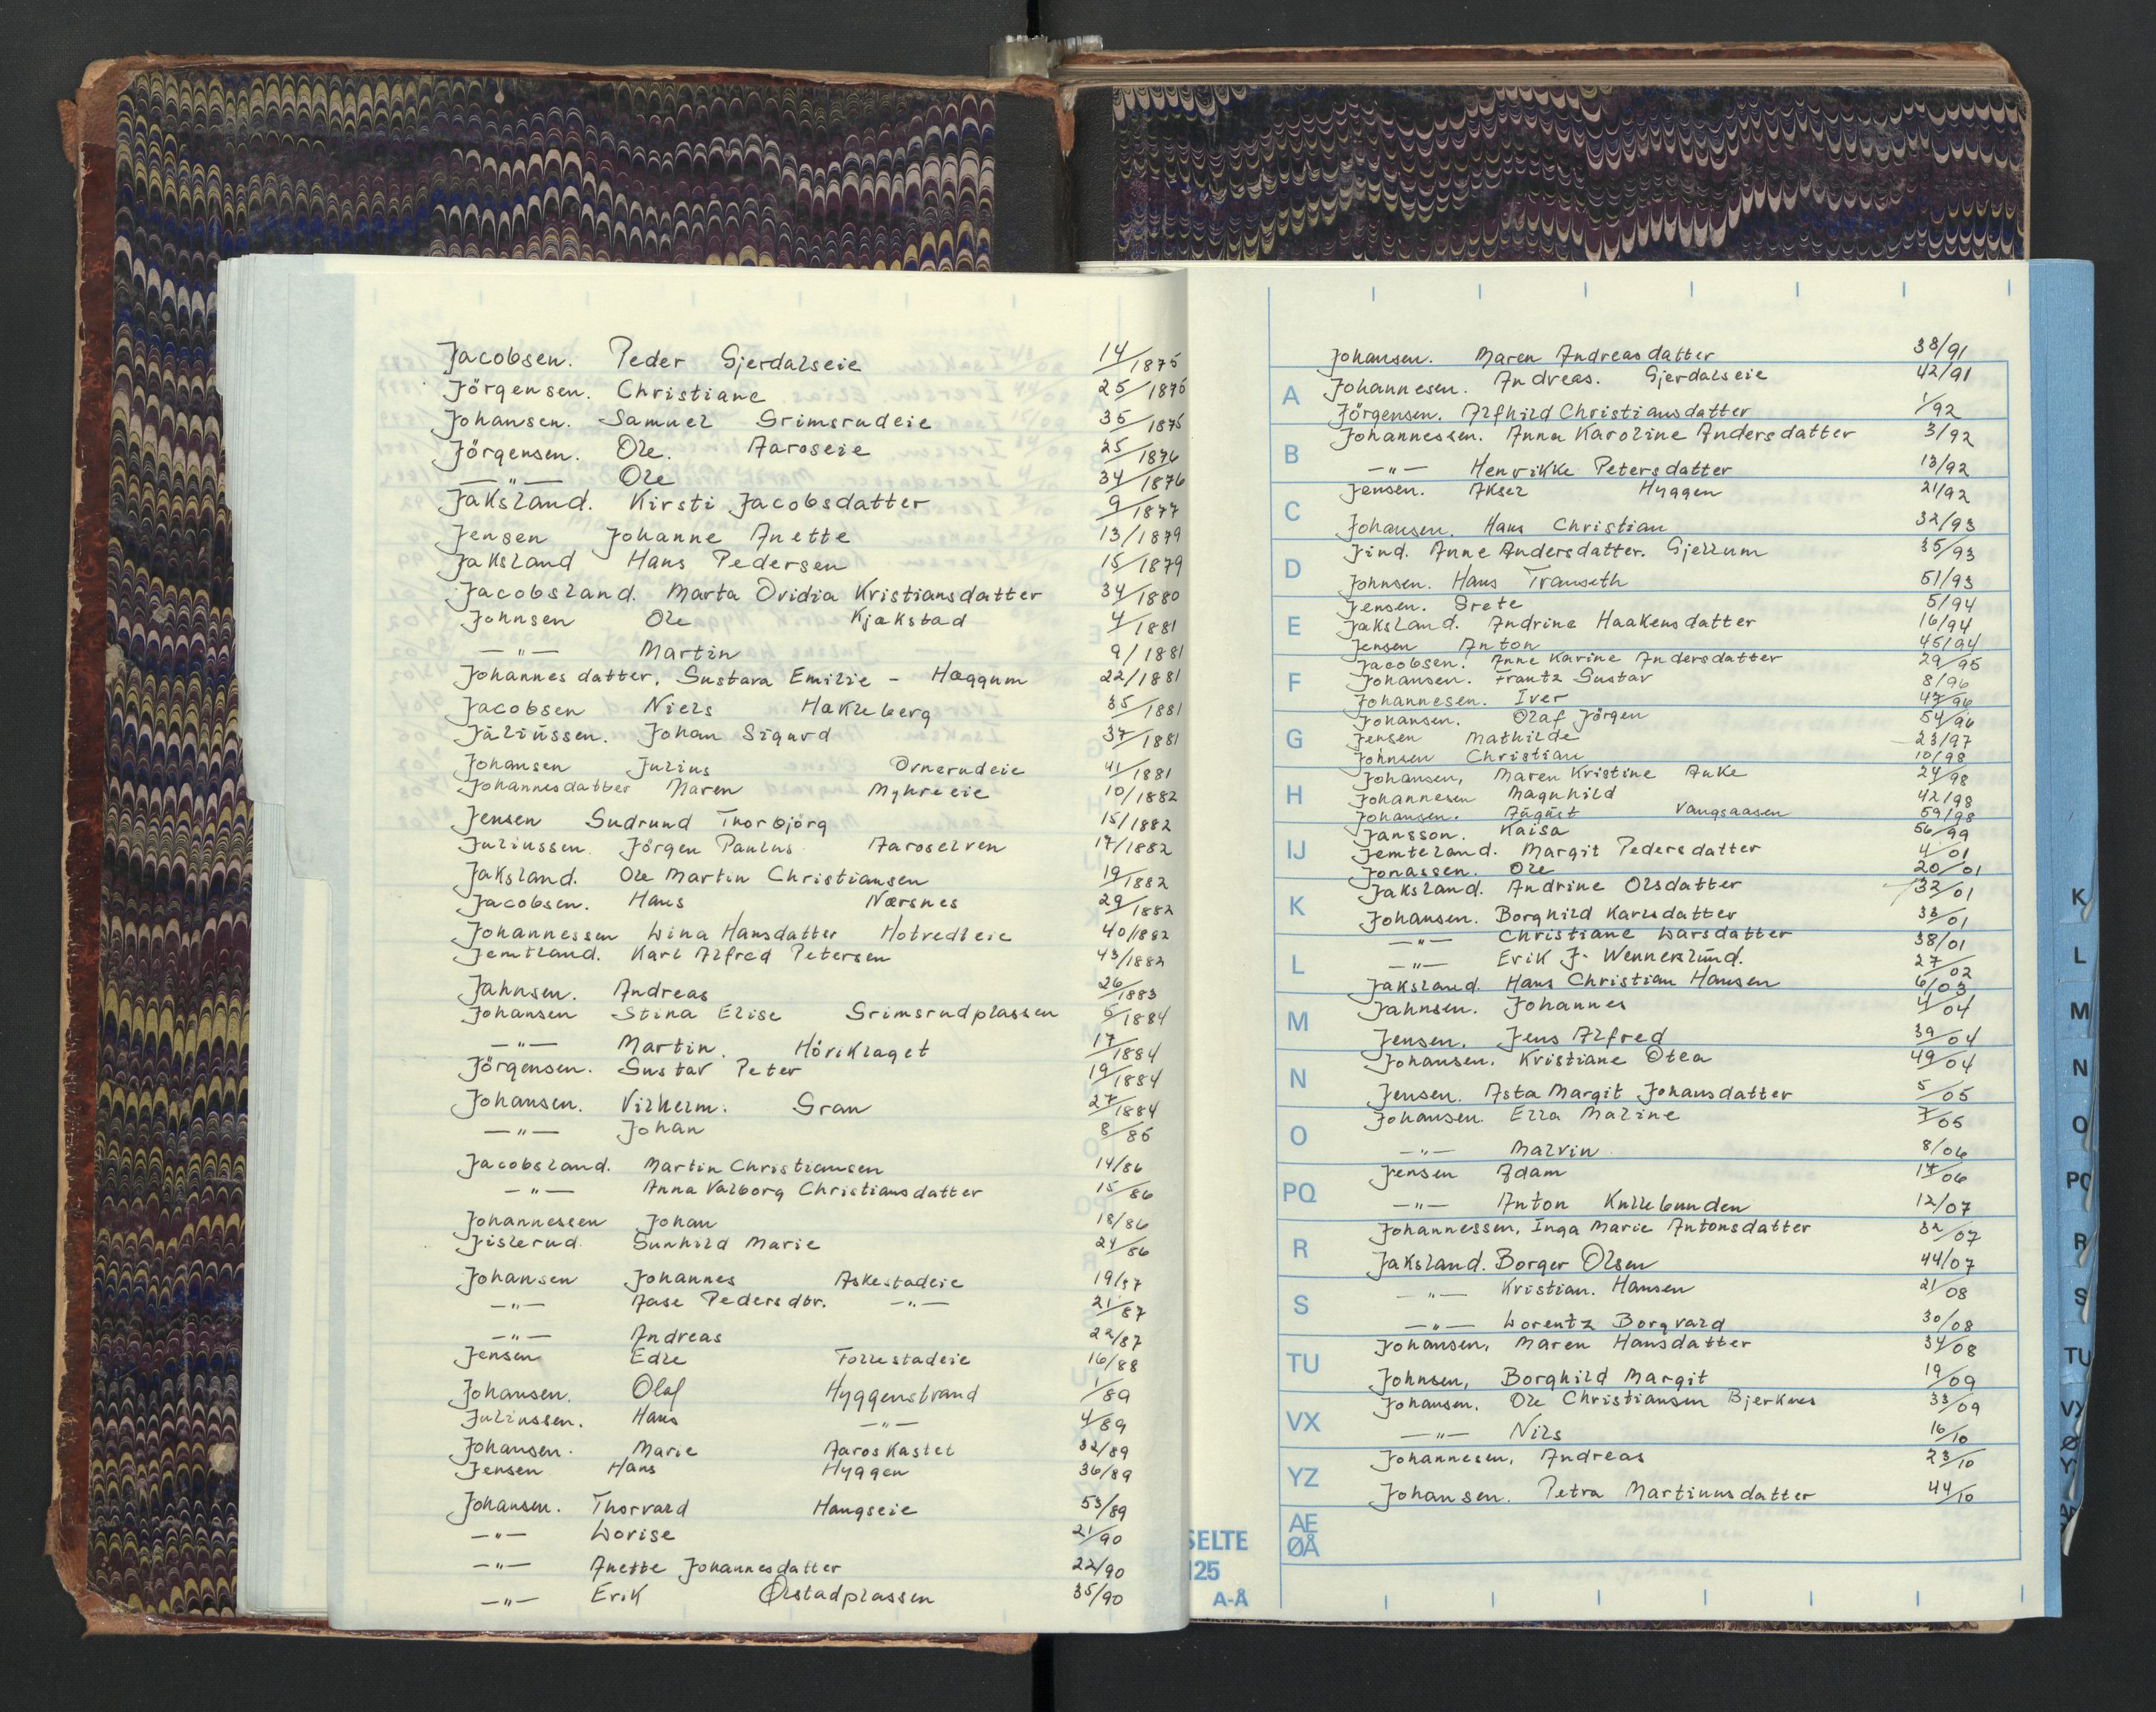 Jacobsen. Peder Gjerdalseie 14/1875
Jörgensen. Christiane 25/1875
Johansen. Samuel Grimsrudeie 35/1875
Jörgensen. Ole. Aaroseie 25/1876
—"— Ole 34/1876
Jaksland. Kirsti Jacobsdatter 9/1877
Jensen Johanne Anette 13/1879
Jaksland Hans Pedersen 15/1879
Jacobsland. Marta Ovidia Kristiansdatter 34/1880
Johnsen Ole Kjækstad 4/1881
—"— Martin 9/1881
Johannesdatter. Gustava Emilie - Haggum 22/1881
Jacobsen Niels Hakleberg 35/1881
Júliússen. Johan Sigurd 37/1881
Johansen Julius Ornerudeie 41/1881
Johannesdatter Maren Myhreeie 10/1882
Jensen Gudrund Thorbjörg 15/1882
Juliussen Jörgen Paulus Aaroselven 17/1882
Jaksland. Ole Martin Christiansen 19/1882
Jacobsen. Hans Nærsnes 29/1882
Johannessen Lina Hansdatter Hotvedteie 40/1882
Jemtland. Karl Alfred Petersen 43/1882
Jahnsen. Andreas 26/1883
Johansen Stina Elise Grimsrudplassen 5/1884
—"— Martin. Höriklaget 17/1884
Jörgensen. Gustav Peter 19/1884
Johansen. Vilhelm. Gran 27/1884
—"— Johan 8/86
Jacobsland. Martin Christiansen 14/86
—"— Anna Valborg Christiansdatter 15/86
Johannessen Johan 18/86
Jislerud. Gunhild Marie 24/86
Johansen Johannes Askestadeie 19/87
—"— Aase Pedersdtr. —"— 21/87
—"— Andreas 22/87
Jensen Edle Follestadeie 16/88
Johansen. Olaf Hyggenstrand 1/89
Juliussen. Hans —"— 4/89
Johansen. Marie Aaroskastet 32/89
Jensen Hans Hyggen 36/89
Johansen. Thorvald Haugseie 53/89
—"— Lovise 21/90
—"— Anette Johannesdatter 22/90
—"— Erik Ølstadplassen 35/90
Johansen. Maren Andreasdatter 38/91
Johannesen. Andreas. Gjerdalseie 42/91
Jörgensen. Alfhild Christiansdatter 1/92
Johannessen. Anna Karoline Andersdatter 3/92
—"— Henrikke Petersdatter 13/92
Jensen. Aksel Hyggen 21/92
Johansen. Hans Christian 32/93
Jind. Anne Andersdatter. Gjellum 35/93
Johnsen. Hans Transeth 51/93
Jensen. Grete 5/94
Jaksland. Andrine Haakensdatter 16/94
Jensen Anton 45/94
Jacobsen. Anne Karine Andersdatter 29/95
Johansen. Frantz Gustav 8/96
Johannesen. Iver 47/96
Johansen. Olaf Jörgen 54/96
Jensen Mathilde 23/97
Johnsen Christian 10/98
Johansen, Maren Kristine Auke 24/98
Johannesen Magnhild 42/98
Johansen. Aúgúst Vangsaasen 59/98
Jansson. Kaisa 56/99
Jemteland. Margit Pedersdatter 4/01
Jonassen. Ole 20/01
Jaksland. Andrine Olsdatter 32/01
Johansen. Borghild Karlsdatter 33/01
—"— Christiane Larsdatter 38/01
—"— Erik J. Wennerlúnd. 27/02
Jaksland. Hans Christian Hansen 6/03
Jahnsen. Johannes 4/04
Jensen. Jens Alfred 39/04
Johansen. Kristiane Otea 49/04
Jensen. Asta Margit Johansdatter 5/05
Johansen. Ella Maline 7/05
—"— Malvin 8/06
Jensen Adam 17/06
—"— Anton Kullebunden 12/07
Johannessen, Inga Marie Antonsdatter 32/07
Jaksland. Borger Olsen 44/07
—"— Kristian. Hansen 21/08
—"— Lorentz Borgvald 30/08
Johansen, Maren Hansdatter 34/08
Johnsen, Borghild Margit 19/09
Johansen. Ole Christiansen Bjerknes 33/09
—"— Nils 16/10
Johannesen, Andreas 23/10
Johansen. Petra Martinusdatter 44/10
A
B
C
D
E
F
G
H
IJ
K
L
M
N
O
PQ
R
S
TU
VX
YZ
AE
ØÅ
SELTE
125
A-Å
K
L
M
N
O
PQ
R
S
TU